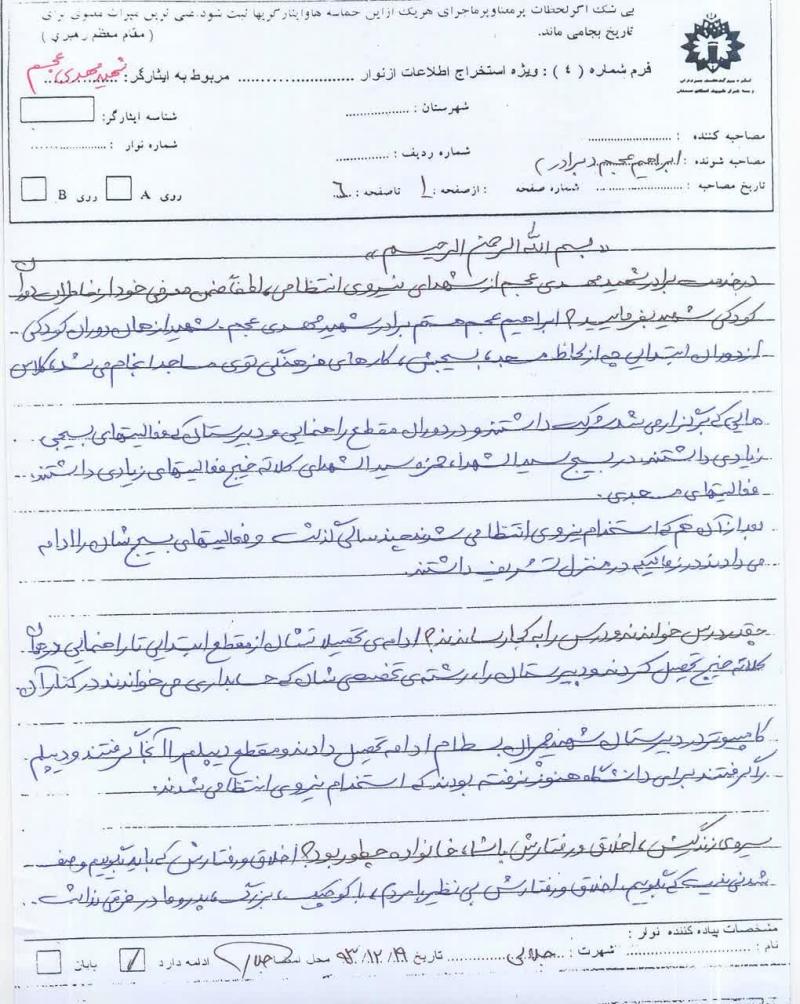 بی شک اگر لحظات پرمعنا و پرماجرای هریک از این حماسه ها و ایثارگریها ثبت شود، غنی ترین میراث معنوی برای
تاریخ بجا می ماند. ( مقام معظم رهبری )
فرم شماره ( ٤ ) : ویژه استخراج اطلاعات از نوار ..................... مربوط به ایثارگر: شهید مهدی عجم
شهرستان : ................ شناسه ایثارگر:
مصاحبه کننده : ........................ شماره نوار : ....................
مصاحبه شونده : ابراهیم عجم (برادر) شماره ردیف : ..............
تاریخ مصاحبه : .................... شماره صفحه : از صفحه : ١ تا صفحه : ٦ روی A روی B
«بسم الله الرحمن الرحیم»
در خدمت برادر شهید مهدی عجم از شهدای نیروی انتظامی، لطفاً ضمن معرفی خود از خاطرات دوران
کودکی شهید بفرمایید؟ ابراهیم عجم هستم برادر شهید مهدی عجم. شهید از همان دوران کودکی
از دوران ابتدایی چه از لحاظ مسجد، بسیجش، کارهای فرهنگی توی مساجد انجام می شد، کلاس
هایی که برگزار می شد شرکت داشتند و در دوران مقطع راهنمایی و دبیرستان که فعالیتهای بسیجی
زیادی داشتند. در بسیج سید الشهدا، حوزه سید الشهدای کلاته خیج فعالیتهای زیادی داشتند.
فعالیتهای مسجدی.
بعد از آن هم که استخدام نیروی انتظامی شدند چند سالی گذشت و فعالیتهای بسیج شان را ادامه
می دادند در زمانیکه در منزل تشریف داشتند.
چقدر درس خواندند و درس را به کجا رساندند؟ ادامه ی تحصیلاتشان از مقطع ابتدایی تا راهنمایی در همان
کلاته خیج تحصیل کردند و دبیرستان را، رشته ی تخصصی شان که حسابداری می خواندند در کنار آن
کامپیوتر در دبیرستان شهید چمران بسطام ادامه تحصیل دادند و مقطع دیپلم را آنجا گرفتند و دیپلم
را گرفتند برای دانشگاه هنوز نرفته بودند که استخدام نیروی انتظامی شدند.
سیره ی زندگیش، اخلاق و رفتارش با شما، خانواده چطور بود؟ اخلاق و رفتارش که باید بگوییم وصف
شدنی نیست که بگوییم. اخلاق و رفتارش بی نظیر با مردم، با کوچک، بزرگ، پدر و مادر فرقی نداشت.
مشخصات پیاده کننده نوار :
نام : .................... شهرت : جلالی تاریخ ٩٣/١٢/١٩ محل امضا ادامه دارد پایان